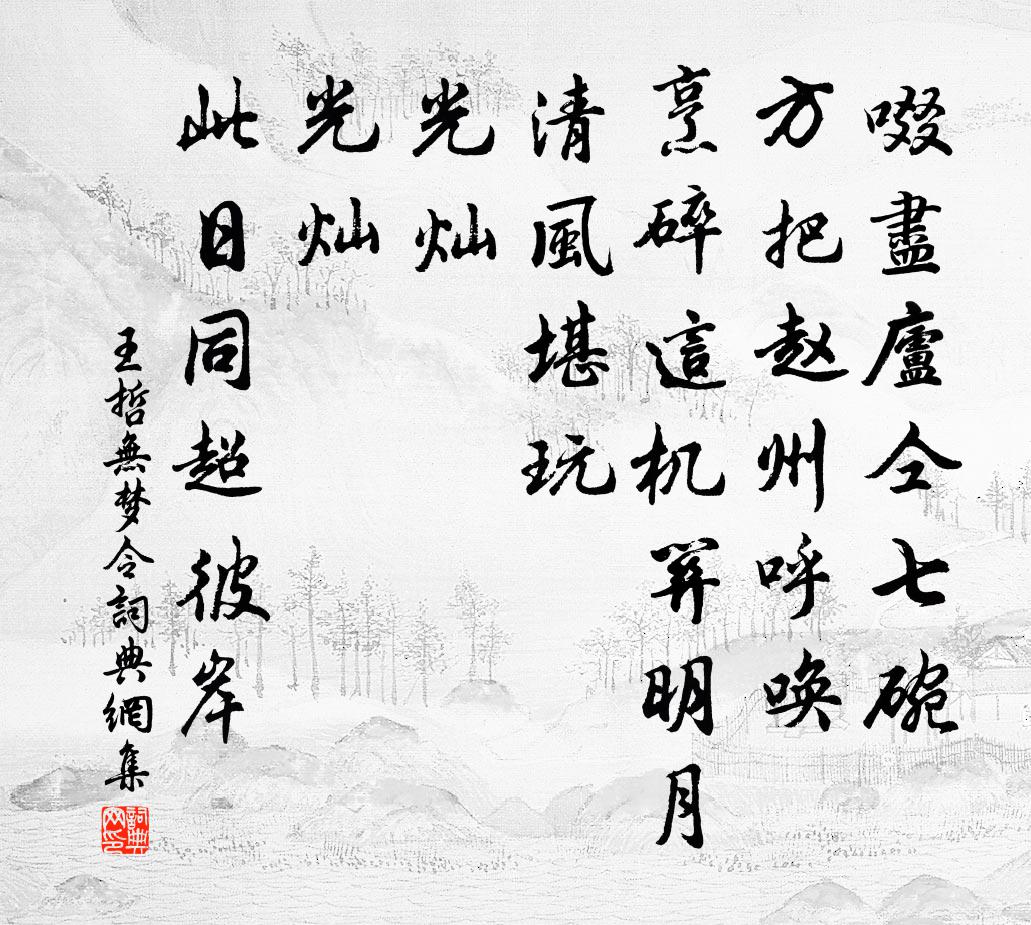 啜盡廬仝七碗
方把赵州呼唤
烹碎這机關明月
清風堪玩
光灿
光灿
此日同超彼岸
王哲無梦令詞典網集
詞典网印